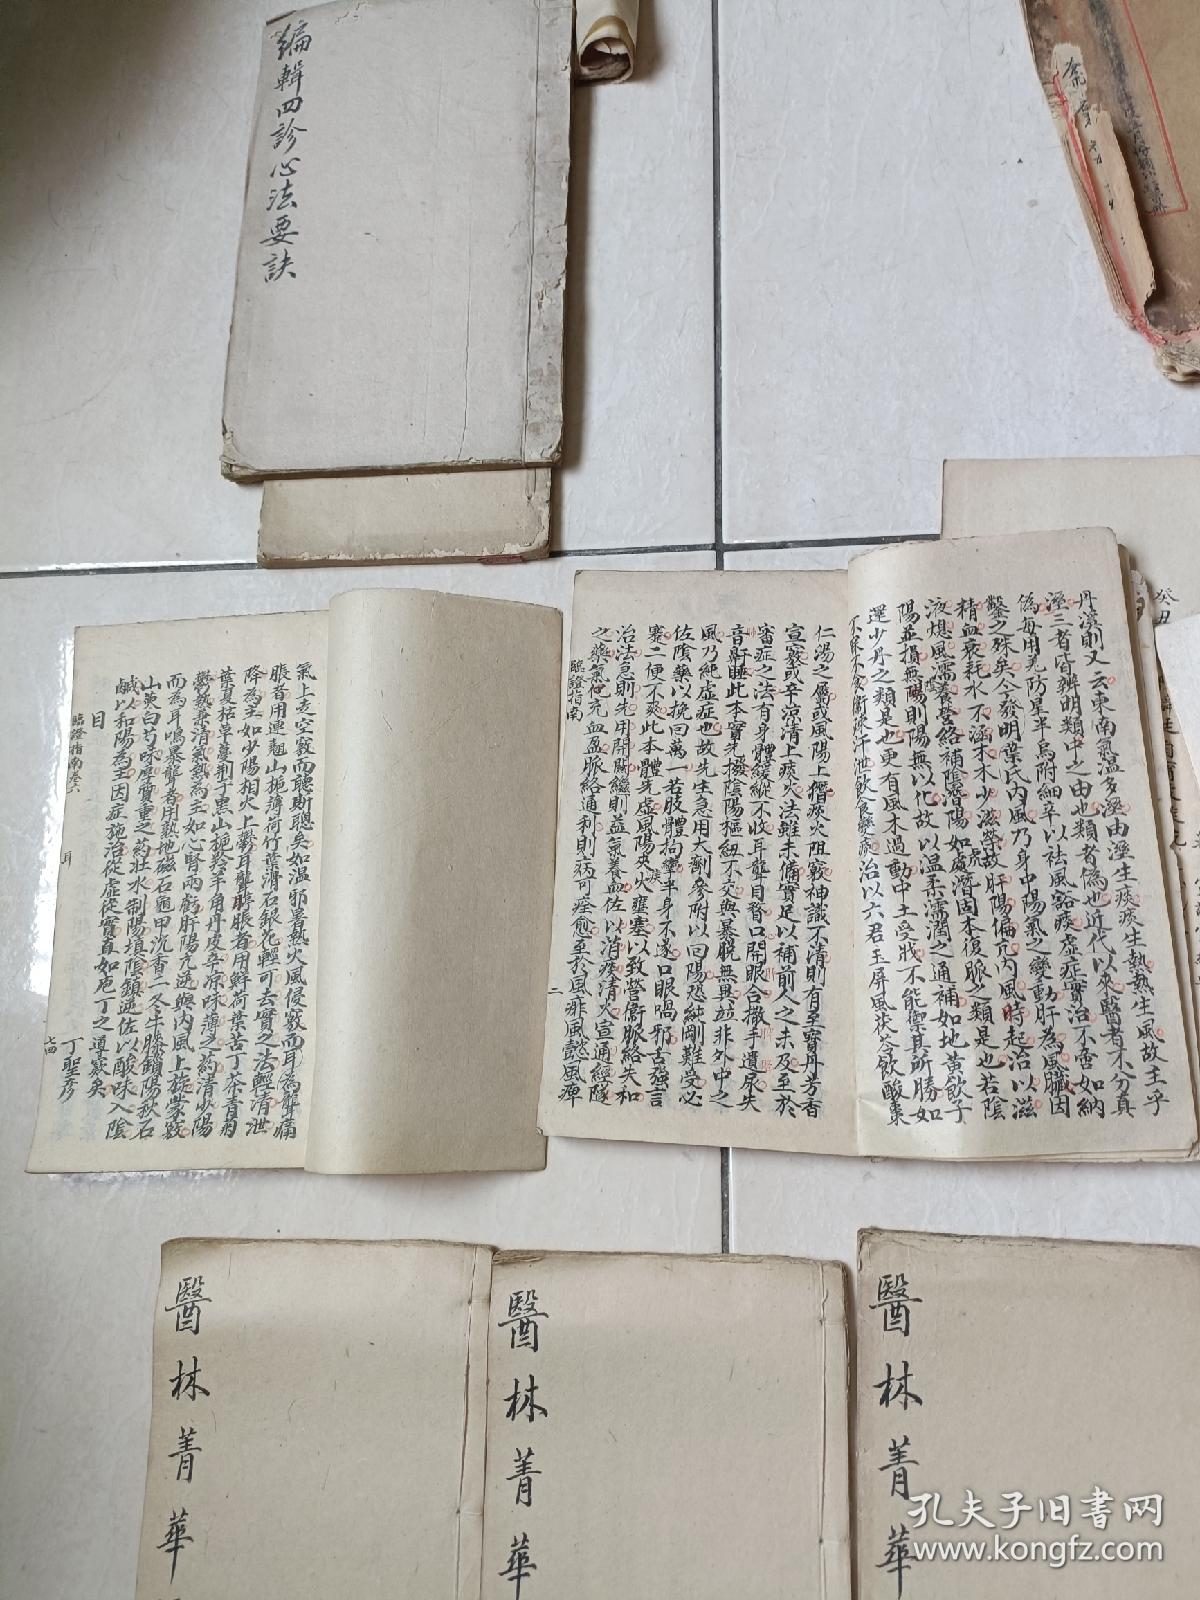 編輯四診心法要訣
丹溪則又云東南氣溫多溼由溼生痰痰生熱熱生風故主乎
溼三者皆辨明類中之由也類者偽也近代以來醫者不分真
偽每用羌防星半烏附細辛以祛風豁痰虛症實治不啻如納
鑿之殊矣今發明葉氏內風乃身中陽氣之變動肝為風臟因
精血衰耗水不涵木木少滋榮故肝陽偏亢內風時起治以滋
液熄風濡養營絡補陰潛陽如虎潛固本復脈之類是也若陰
陽並損無陽則陰無以化故以溫柔濡潤之通補如地黃飲子
還少丹之類是也更有風木過動中土受戕不能禦其所勝如
不寐不食衛疎汗泄飲食變痰治以六君玉屏風茯苓飲酸棗
仁湯之屬或風陽上僭痰火阻竅神識不清則有至寶丹芳香
宣竅或辛涼清上痰火法雖未備實足以補前人之未及至於
審症之法有身體緩縱不收耳聾目瞀口開眼合撒手遺尿失
音鼾睡此本實先撥陰陽樞紐不交與暴脫無異並非外中之
風乃純虛症也故先生急用大劑參附以回陽恐純剛難受必
佐陰藥以挽回萬一若肢體拘攣半身不遂口眼喎邪舌強言
蹇二便不爽此本體先虛風陽夾火壅塞以致營衛脈絡失和
治法急則先用開關繼則益氣養血佐以消痰清火宣通經隧
之藥氣充血盈脈絡通利則病可痊愈至於風痱風懿風痺
臨證指南
二
氣上走空竅而聽斯聰矣如溫邪暑熱火風侵竅而耳為聾痛
脹者用連翹山梔薄荷竹葉滑石銀花輕可去實之法輕清泄
降為主如少陽相火上鬱耳聾聤脹者用鮮荷葉苦丁茶青菊
葉夏枯草蔓荊子黑山梔羚羊角丹皮辛涼味薄之藥清少陽
鬱熱兼清氣熱為主如心腎兩虧肝陽亢逆與內風上旋蒙竅
而為耳鳴暴聾者用熟地磁石龜甲沉香二冬牛膝鎖陽秋石
山萸白芍味厚質重之藥壯水制陽填陰鎮逆佐以酸味入陰
鹹以和陽為主因症施治從虛從實直如庖丁之導窾矣
目
丁聖彥
臨證指南卷六
耳
七四
癸丑
醫林菁華
醫林菁華
醫林菁華
孔夫子旧书网
www.kongfz.com